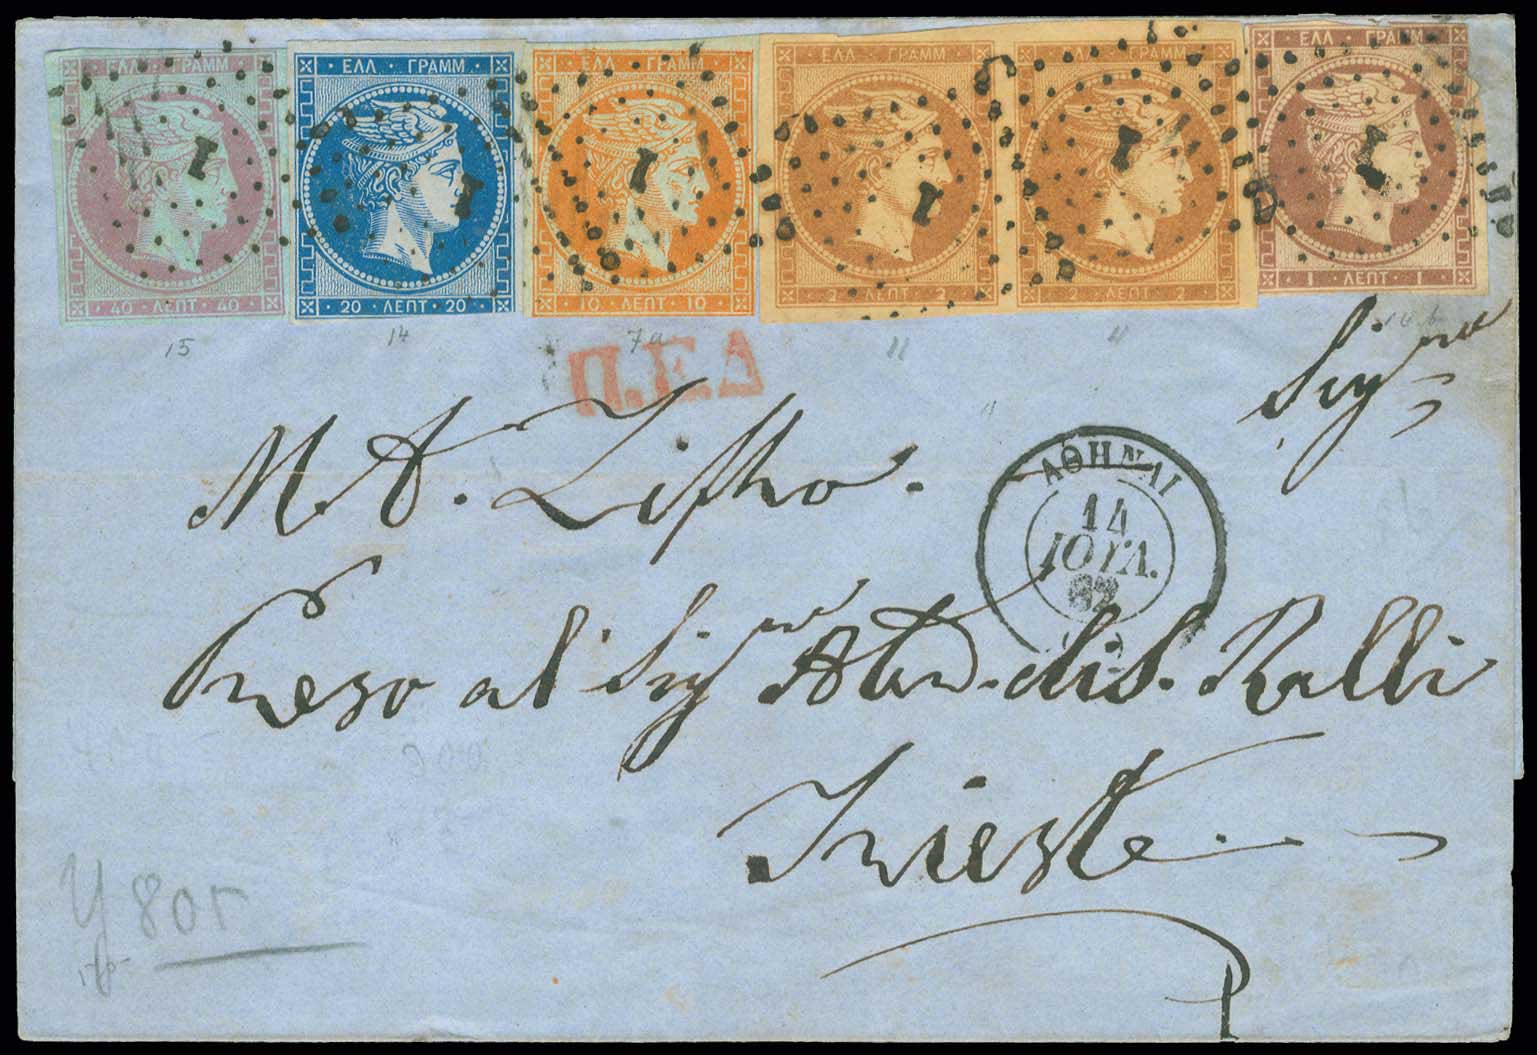 ΕΛΛ · ΓΡΑΜΜ
40 · ΛΕΠΤ · 40
ΕΛΛ · ΓΡΑΜΜ
20 · ΛΕΠΤ · 20
ΕΛΛ · ΓΡΑΜΜ
10 · ΛΕΠΤ · 10
ΕΛΛ · ΓΡΑΜΜ
2 · ΛΕΠΤ · 2
ΕΛΛ · ΓΡΑΜΜ
2 · ΛΕΠΤ · 2
ΕΛΛ · ΓΡΑΜΜ
1 · ΛΕΠΤ · 1
1
1
1
1
1
1
15
14
7a
11
11
Π.Ε.Δ
Sig
M A.
ΑΘΗΝΑΙ
14
ΙΟΥΛ.
62
(1)
al Sig di S. Ralli
Trieste.